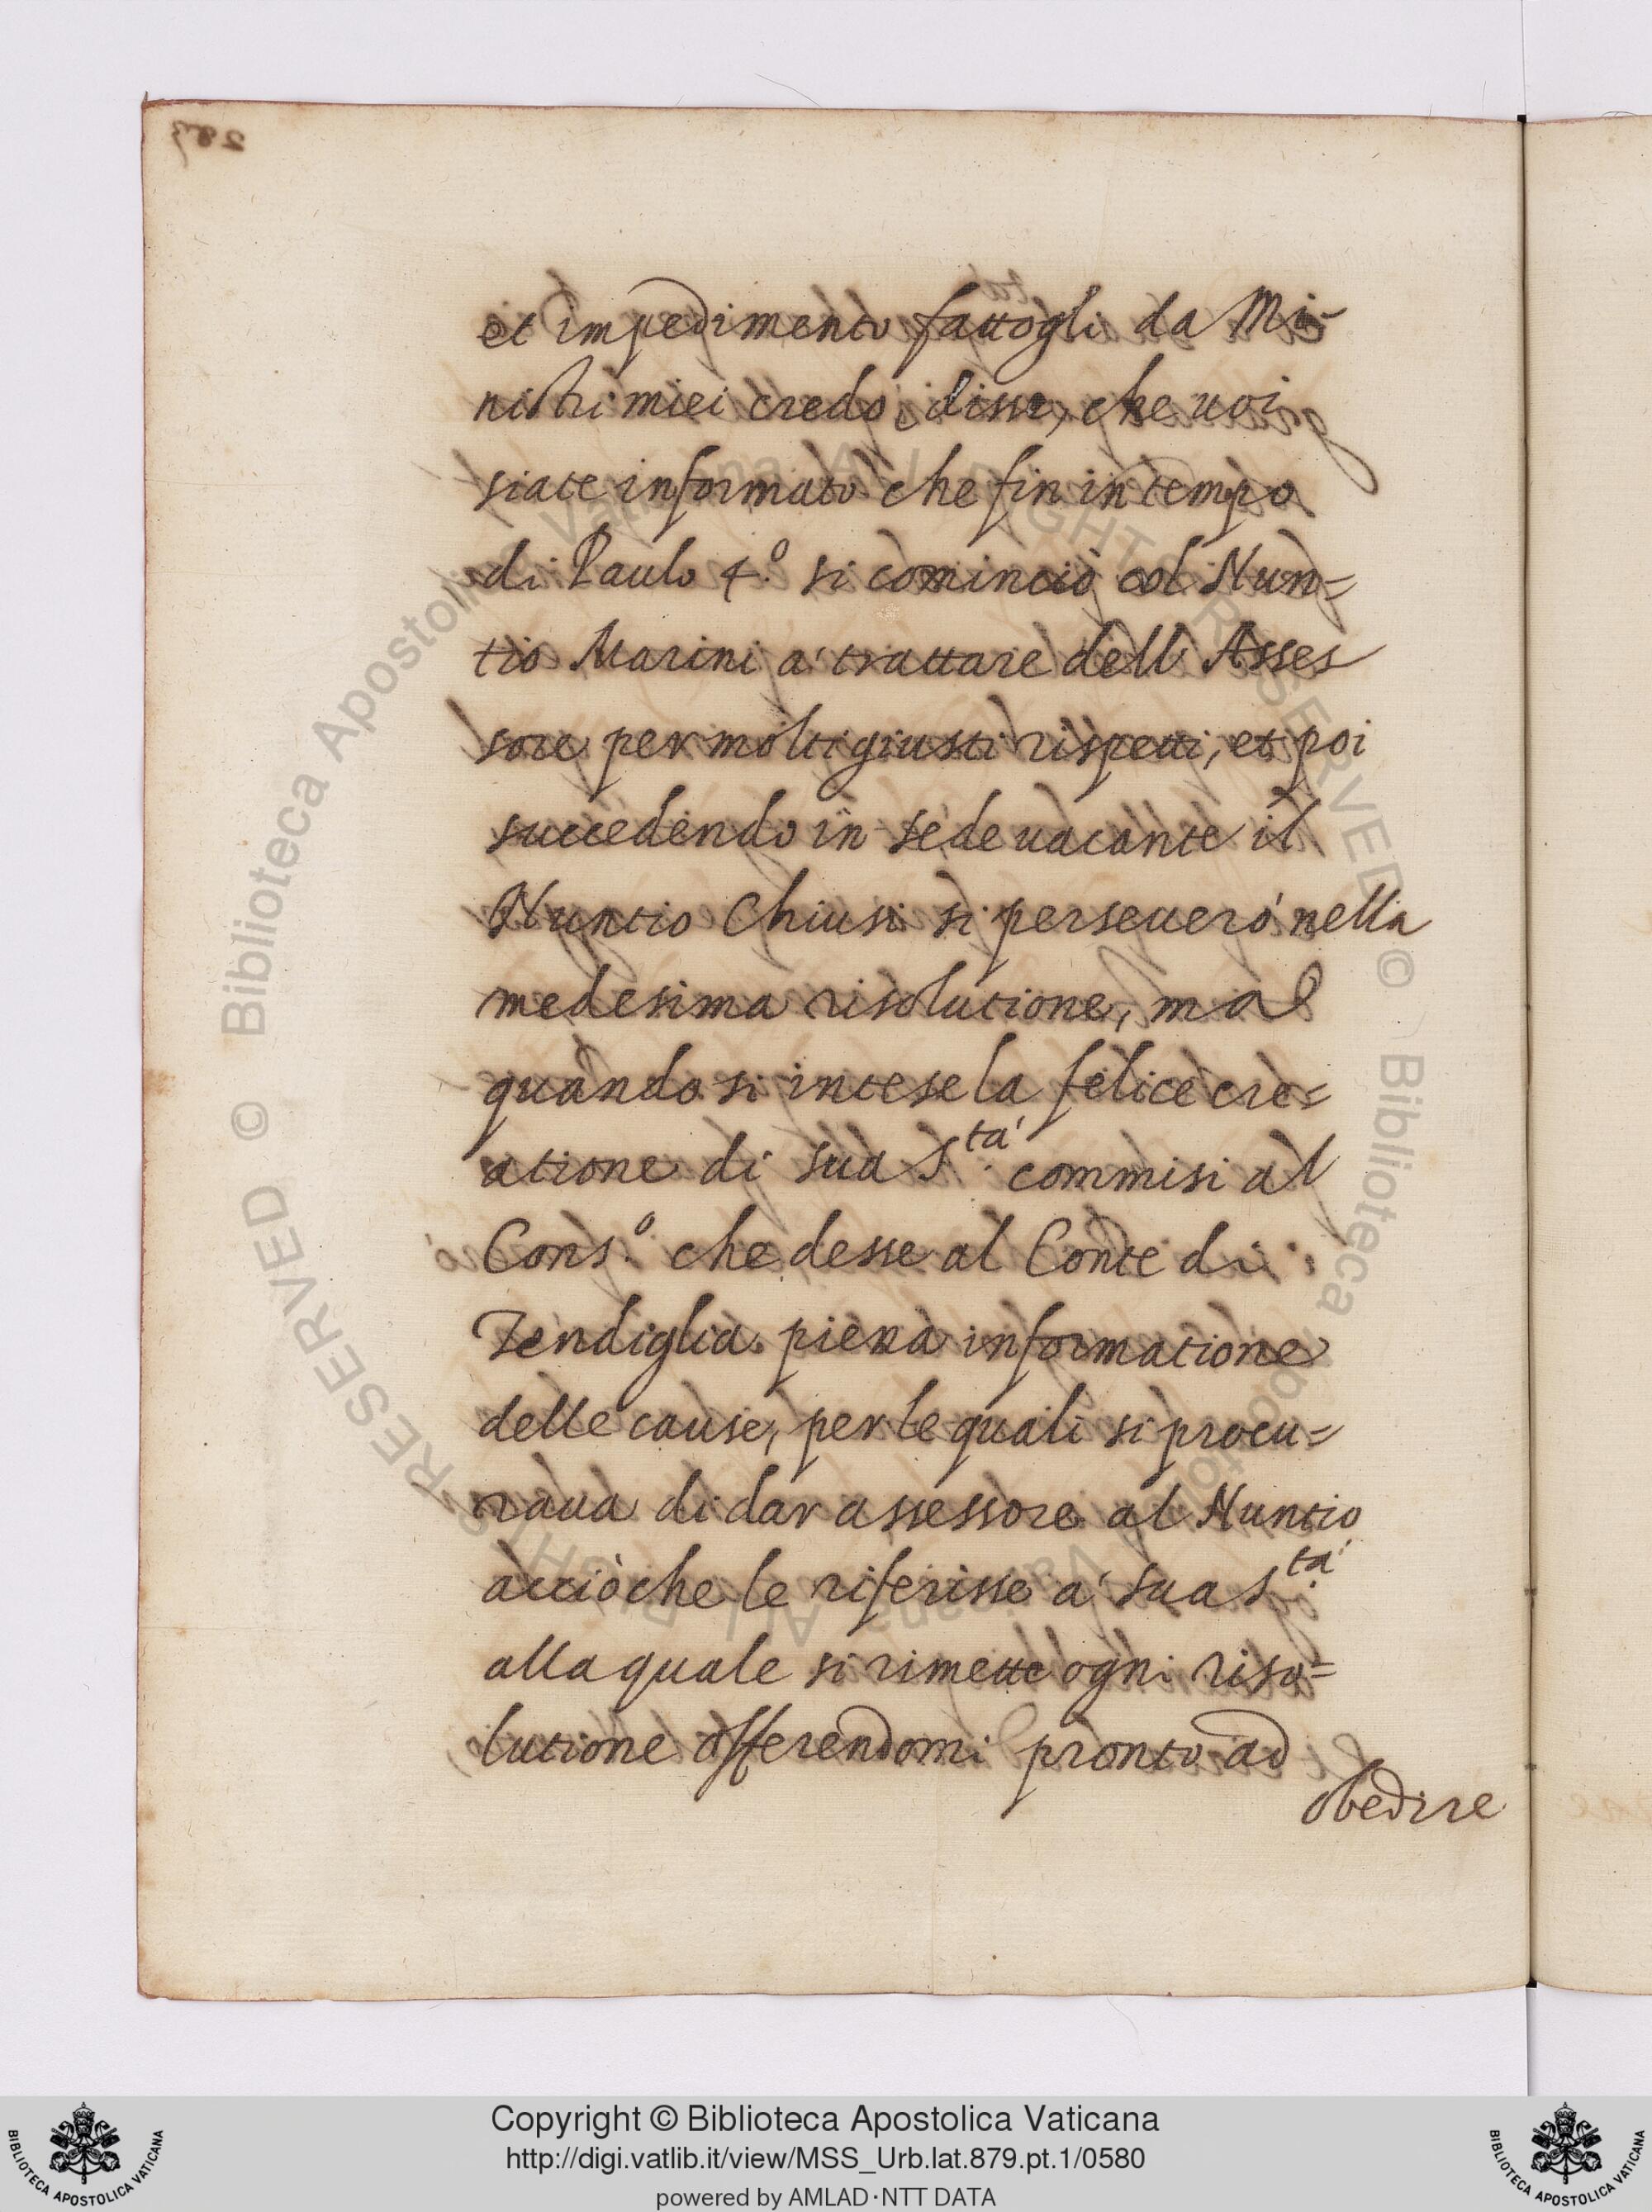 et impedimento fattogli da Mi-
nistri miei credo, disse, che uoi
siate informato che fin in tempo
di Paulo 4.º si cominciò col Nun=
tio Marini a' trattare dell' Asses
sore per molti giusti rispetti, et poi
succedendo in sede uacante il
Nuntio Chiusi si perseuerò nella
medesima risolutione, ma
quando si intese la felice cre=
atione di sua S.tà commisi al
Cons.º che desse al Conte di
Tendiglia piena informatione
delle cause, per le quali si procu=
raua di dar assessore al Nuntio
acciò che le riferisse a' sua S.tà
alla quale si rimette ogni riso=
lutione offerendomi pronto ad
obedire
© Biblioteca Apostolica Vaticana ALL RIGHTS RESERVED © Biblioteca Apostolica Vaticana ALL RIGHTS RESERVED
BIBLIOTECA APOSTOLICA VATICANA
Copyright © Biblioteca Apostolica Vaticana
http://digi.vatlib.it/view/MSS_Urb.lat.879.pt.1/0580
powered by AMLAD·NTT DATA
BIBLIOTECA APOSTOLICA VATICANA